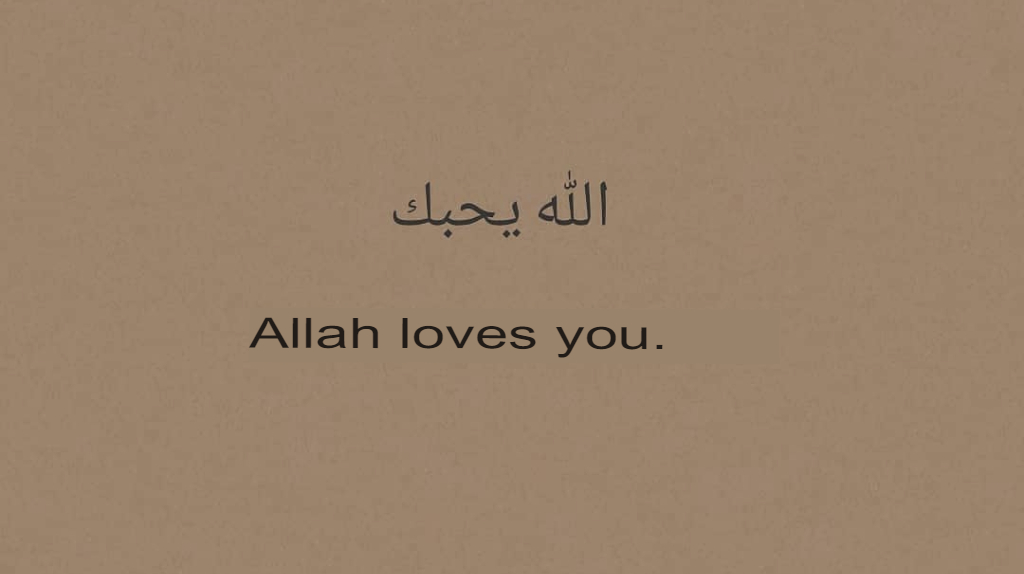 الله يحبك
Allah loves you.